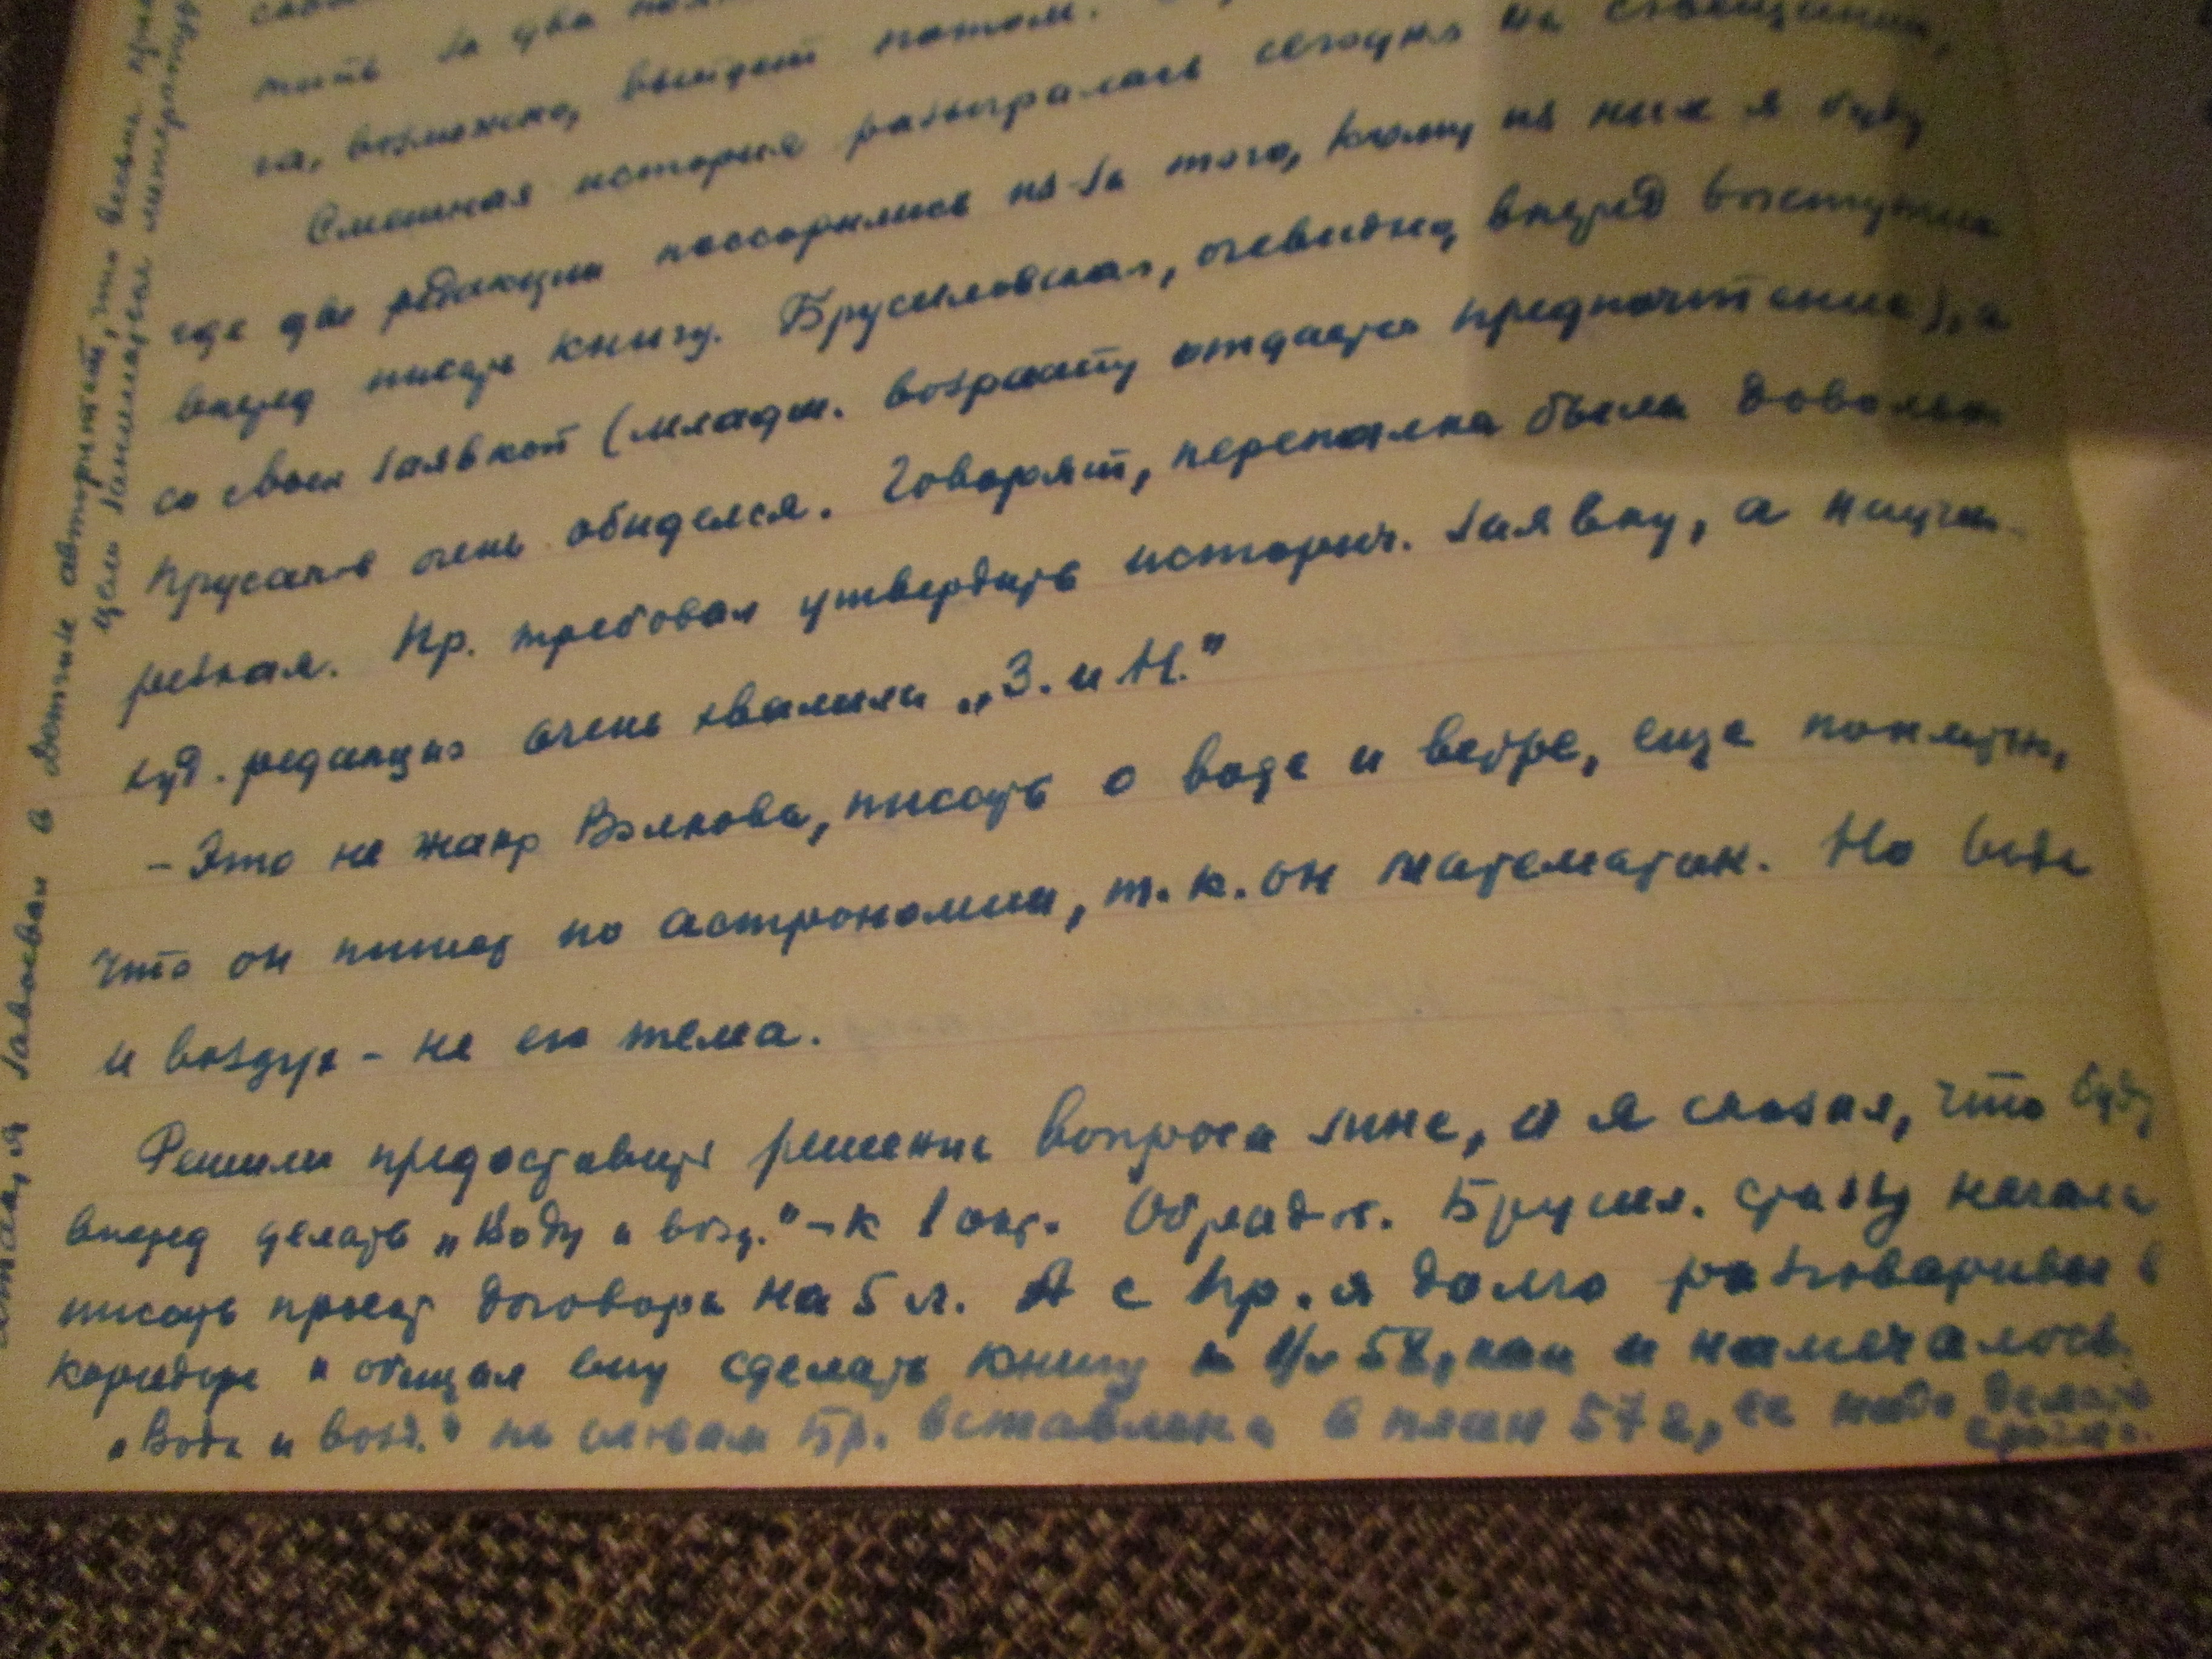 жить за два
на, возможно, выйдет потом.
Смешная история разыгралась сегодня на совещании,
где две редакции поссорились из-за того, кому из них я буду
вперед писать книгу. Брусиловская, очевидно, вперед выступила
со своей заявкой (младш. возрасту отдается предпочтение), а
Прусаков очень обиделся. Говорят, перепалка была довольно
резкая. Пр. требовал утвердить историч. заявку, а научн.-
худ. редакция очень хвалили „З. и Н."
– Это не жанр Волкова, писать о воде и ветре, еще понятно,
что он пишет по астрономии, т.к. он математик. Но вода
и воздух – не его тема.
Решили предоставить решение вопроса мне, и я сказал, что буду
вперед делать „Воду и возд." – к 1 окт. Брусил. сразу начала
писать проект договора на 5 л. А с Пр. я долго разговаривал в
коридоре и обещал ему сделать книгу к 58, как и намечалось.
„Вода и возд." по словам Бр. вставлена в план 57 г., ее надо делать
срочно.
я завоевал в Детгизе авторитет, что весьма